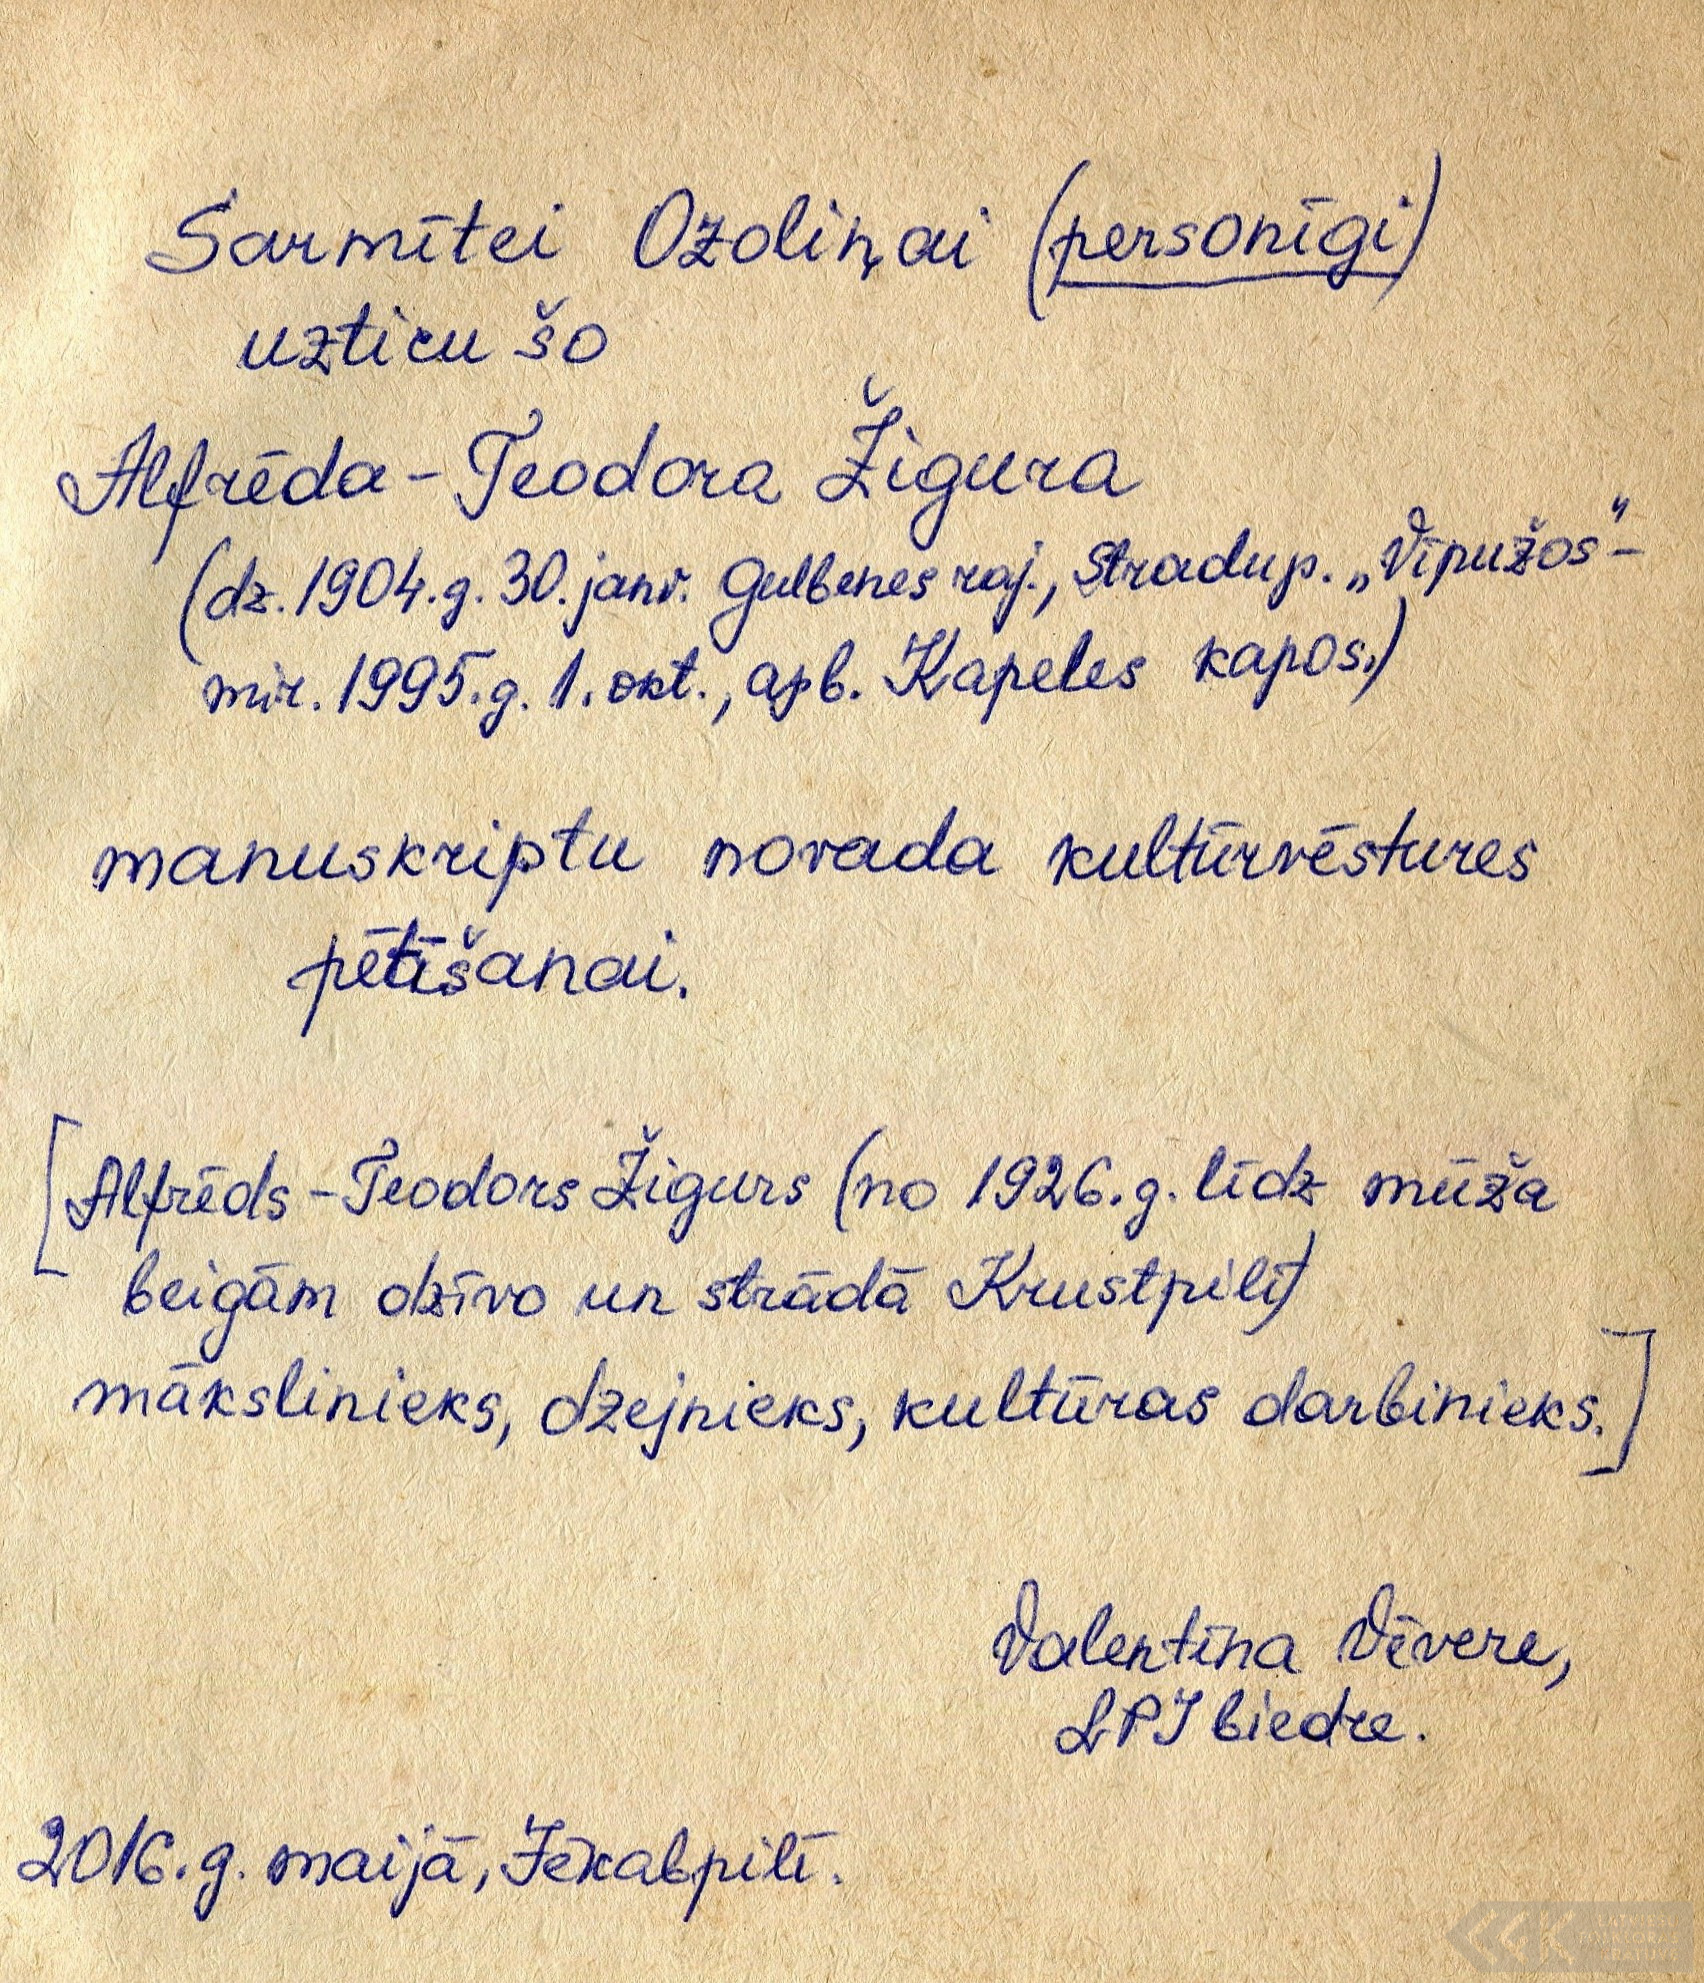 Sarmītei Ozoliņai (personīgi)
uzticu šo
Alfrēda - Teodora Žigura
(dz. 1904. g. 30. janv. Gulbenes raj., Stradu p. „Vīpužos" -
mir. 1995. g. 1. okt., apb. Kapeles kapos.)
manuskriptu novada kultūrvēstures
pētīšanai.
[Alfrēds - Teodors Žigurs (no 1926. g. līdz mūža
beigām dzīvo un strādā Krustpilī)
mākslinieks, dzejnieks, kultūras darbinieks.]
Valentīna Vēvere,
LPI biedre.
2016. g. maijā, Jēkabpilī.
LATVIEŠU
FOLKLORAS
KRĀTUVE